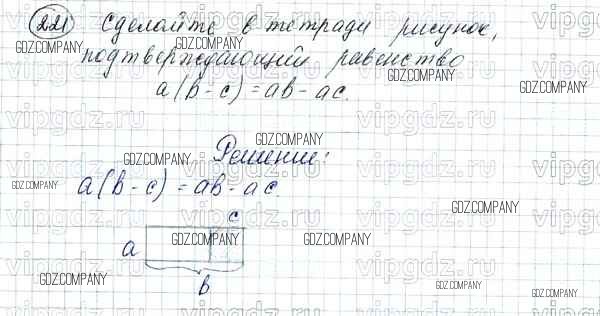 221 Сделайте в тетради рисунок,
GDZ.COMPANY GDZ.COMPANY GDZ.COMPANY
подтверждающий равенство
a(b-c)=ab-ac.
GDZ.COMPANY GDZ.COMPANY
vipgdz.ru vipgdz.ru vipgdz.ru
GDZ.COMPANY
Решение:
GDZ.COMPANY GDZ.COMPANY
GDZ.COMPANY
a(b-c)=ab-ac.
GDZ.COMPANY
c
GDZ.COMPANY
a
GDZ.COMPANY GDZ.COMPANY
vipgdz.ru vipgdz.ru vipgdz.ru
GDZ.COMPANY
b
GDZ.COMPANY
GDZ.COMPANY